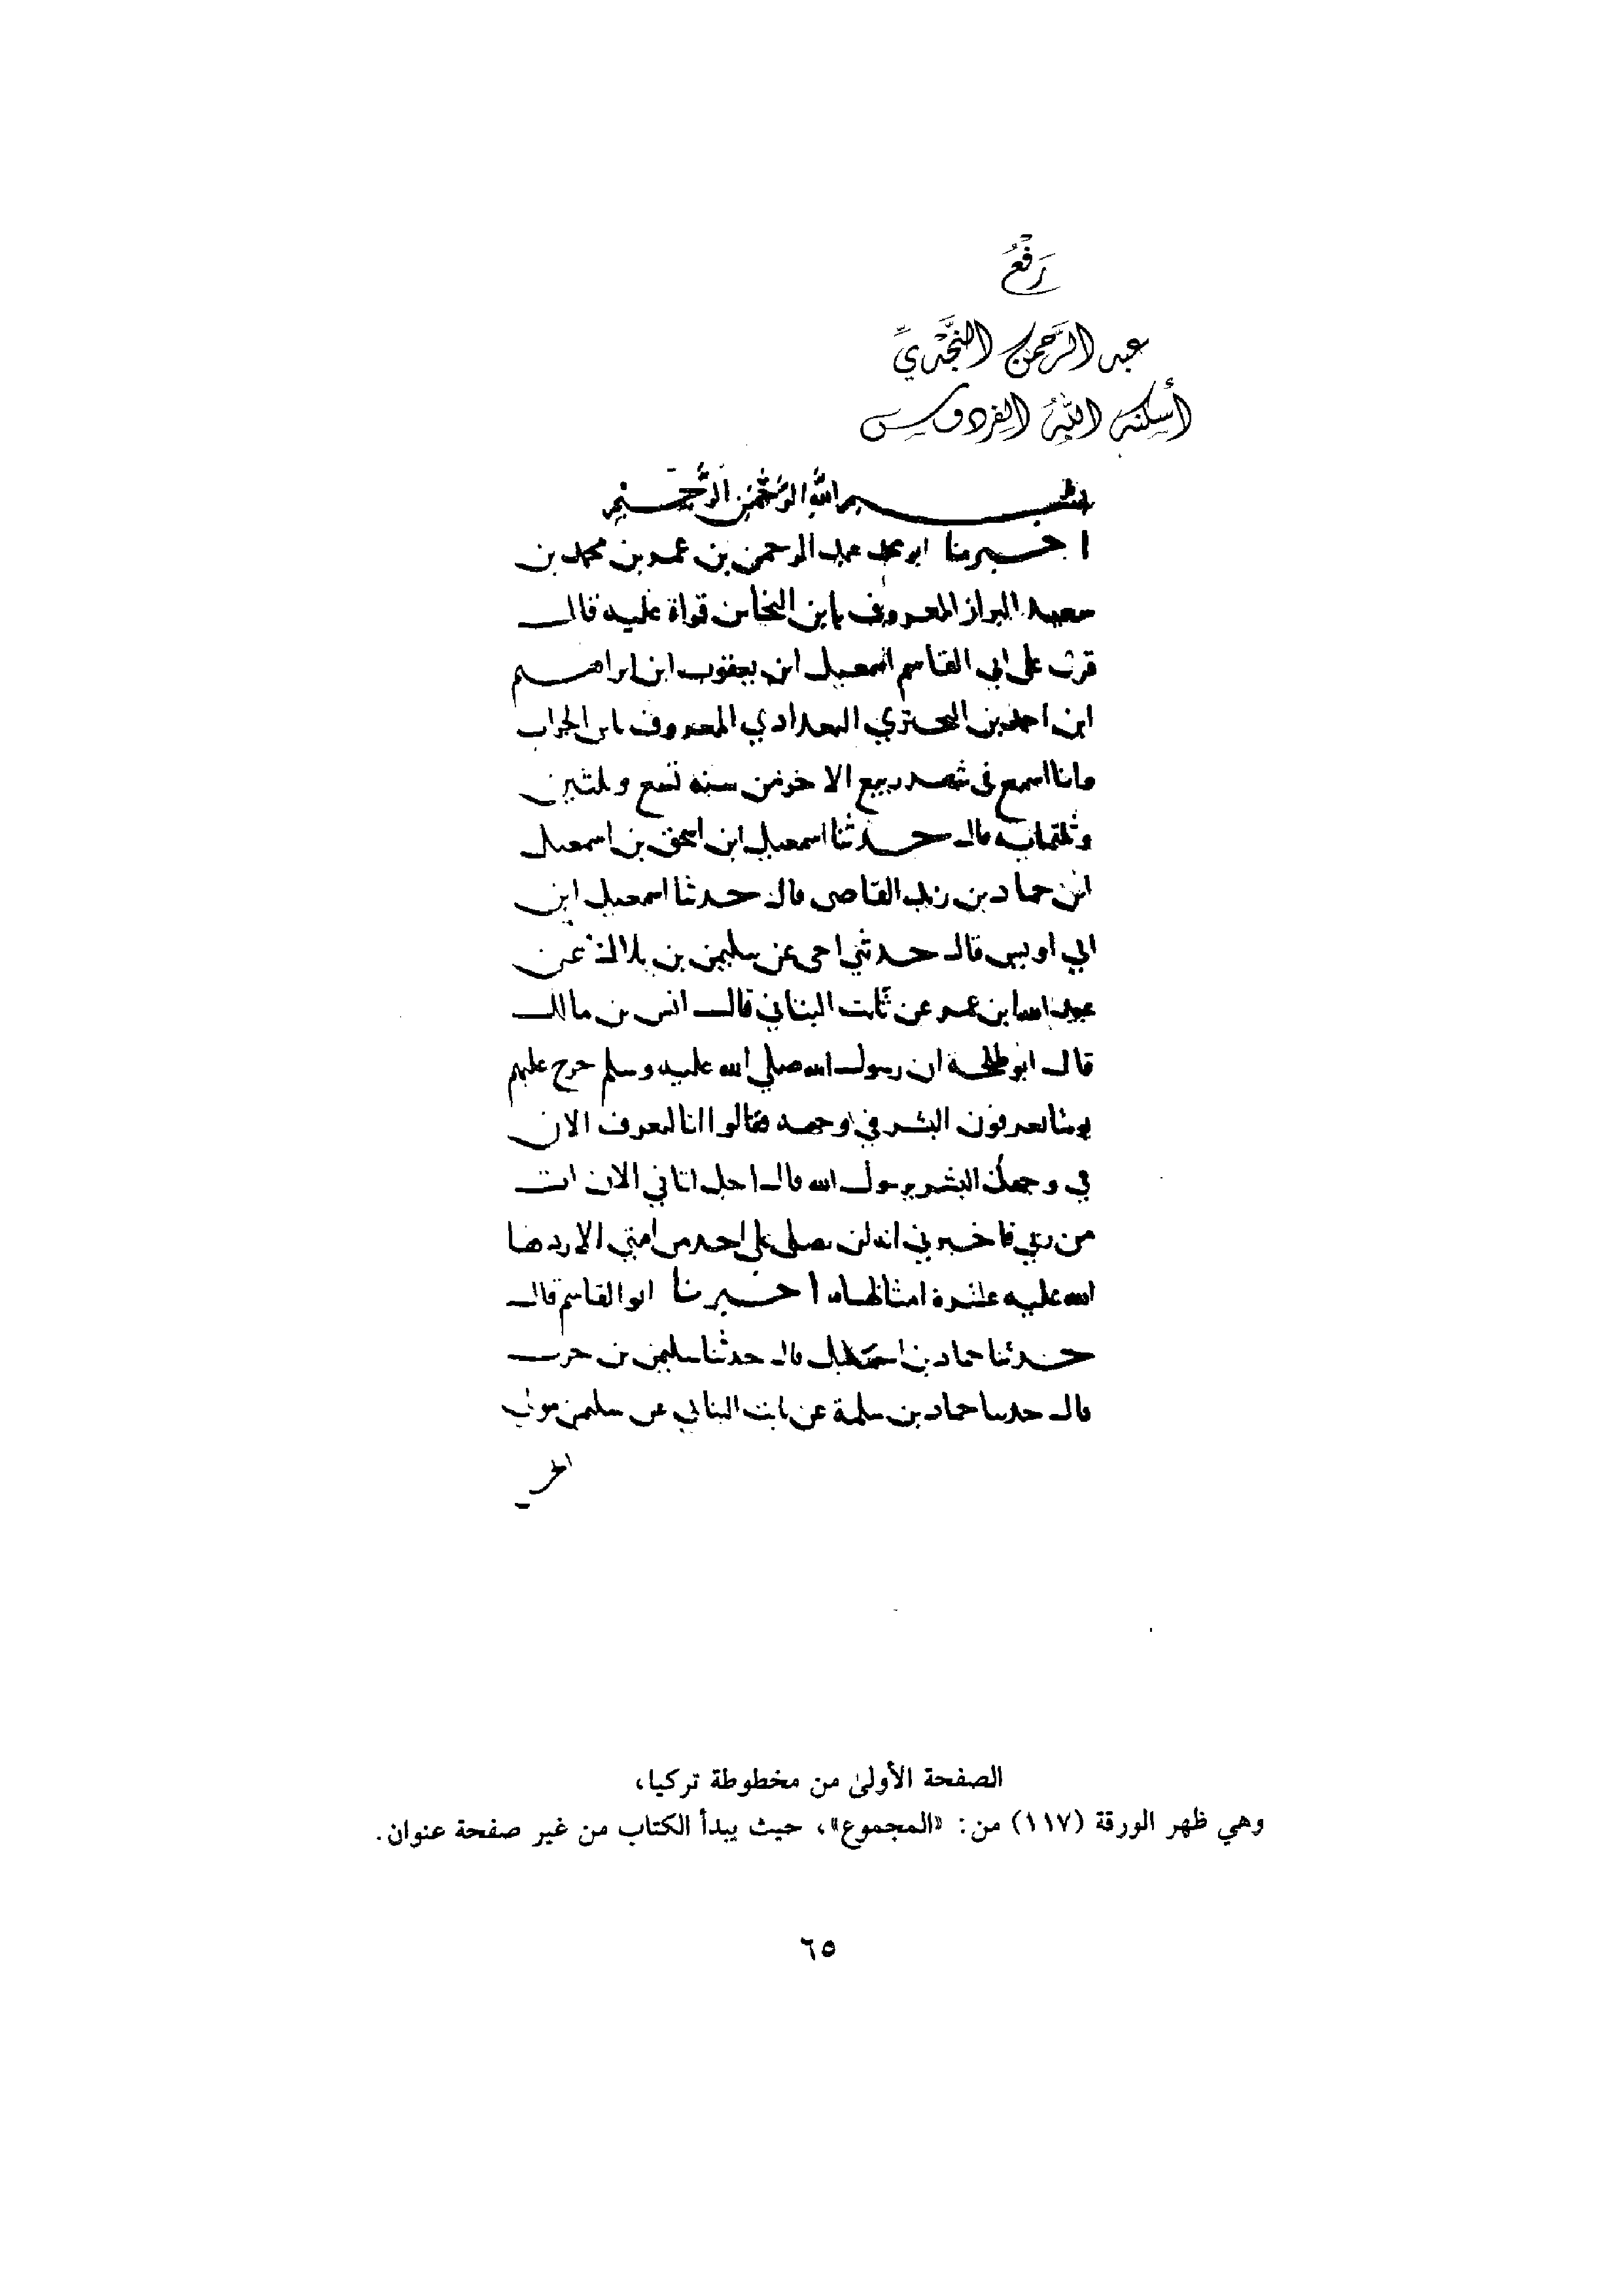 رَفْعُ
عبد الرَّحمن النَّجْديِّ
أسكنه اللهُ الفردوس
بسم الله الرحمن الرحيم
اخبرنا ابو محمد عبد الرحمن بن عمر بن محمد بن
سعيد البزاز المعروف بابن النحاس قراة عليه قال
قرئ على ابي القاسم اسمعيل ابن يعقوب ابن ابراهيم
ابن احمد بن البحتري البغدادي المعروف بابن الجراب
وانا اسمع في شهر ربيع الاخر من سنه تسع وثلثين
وثلثمايه قال حدثنا اسمعيل ابن اسحق بن اسمعيل
ابن حماد بن زيد القاضي قال حدثنا اسمعيل ابن
ابي اويس قال حدثني اخي عن سليمن بن بلال عن
عبيد الله ابن عمر عن ثابت البناني قال انس بن مالك
قال ابو طلحة ان رسول الله صلي الله عليه وسلم خرج عليهم
يوما يعرفون البشر في وجهه فقالوا انا لنعرف الان
في وجهك البشر يرسول الله قال اجل اتاني الان ات
من ربي فاخبرني انه لن يصلي علي احد من امتي الا ردها
الله عليه عشرة امثالها اخبرنا ابو القاسم قال
حدثنا حماد بن اسحق قال حدثنا سليمن بن حرب
قال حدثنا حماد بن سلمة عن ثابت البناني عن سليمن مولي
الصفحة الأولىٰ من مخطوطة تركيا،
وهي ظهر الورقة (١١٧) من: «المجموع»، حيث يبدأ الكتاب من غير صفحة عنوان.
٦٥